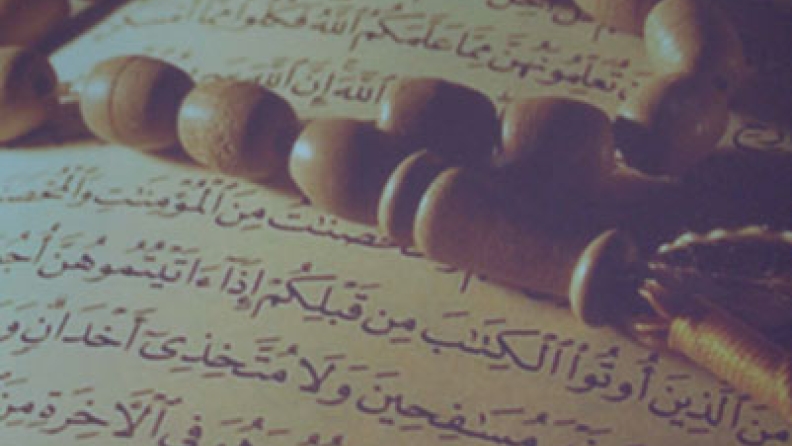 تُعَلِّمُونَهُنَّ مِمَّا عَلَّمَكُمُ ٱللَّهُ فَكُلُوا۟ مِمَّآ
ٱللَّهَ إِنَّ ٱللَّهَ
مِنَ ٱلْمُؤْمِنَٰتِ
مِنَ ٱلَّذِينَ أُوتُوا۟ ٱلْكِتَٰبَ مِن قَبْلِكُمْ إِذَآ ءَاتَيْتُمُوهُنَّ
مُسَٰفِحِينَ وَلَا مُتَّخِذِىٓ أَخْدَانٍ
فِى ٱلْءَاخِرَةِ مِنَ